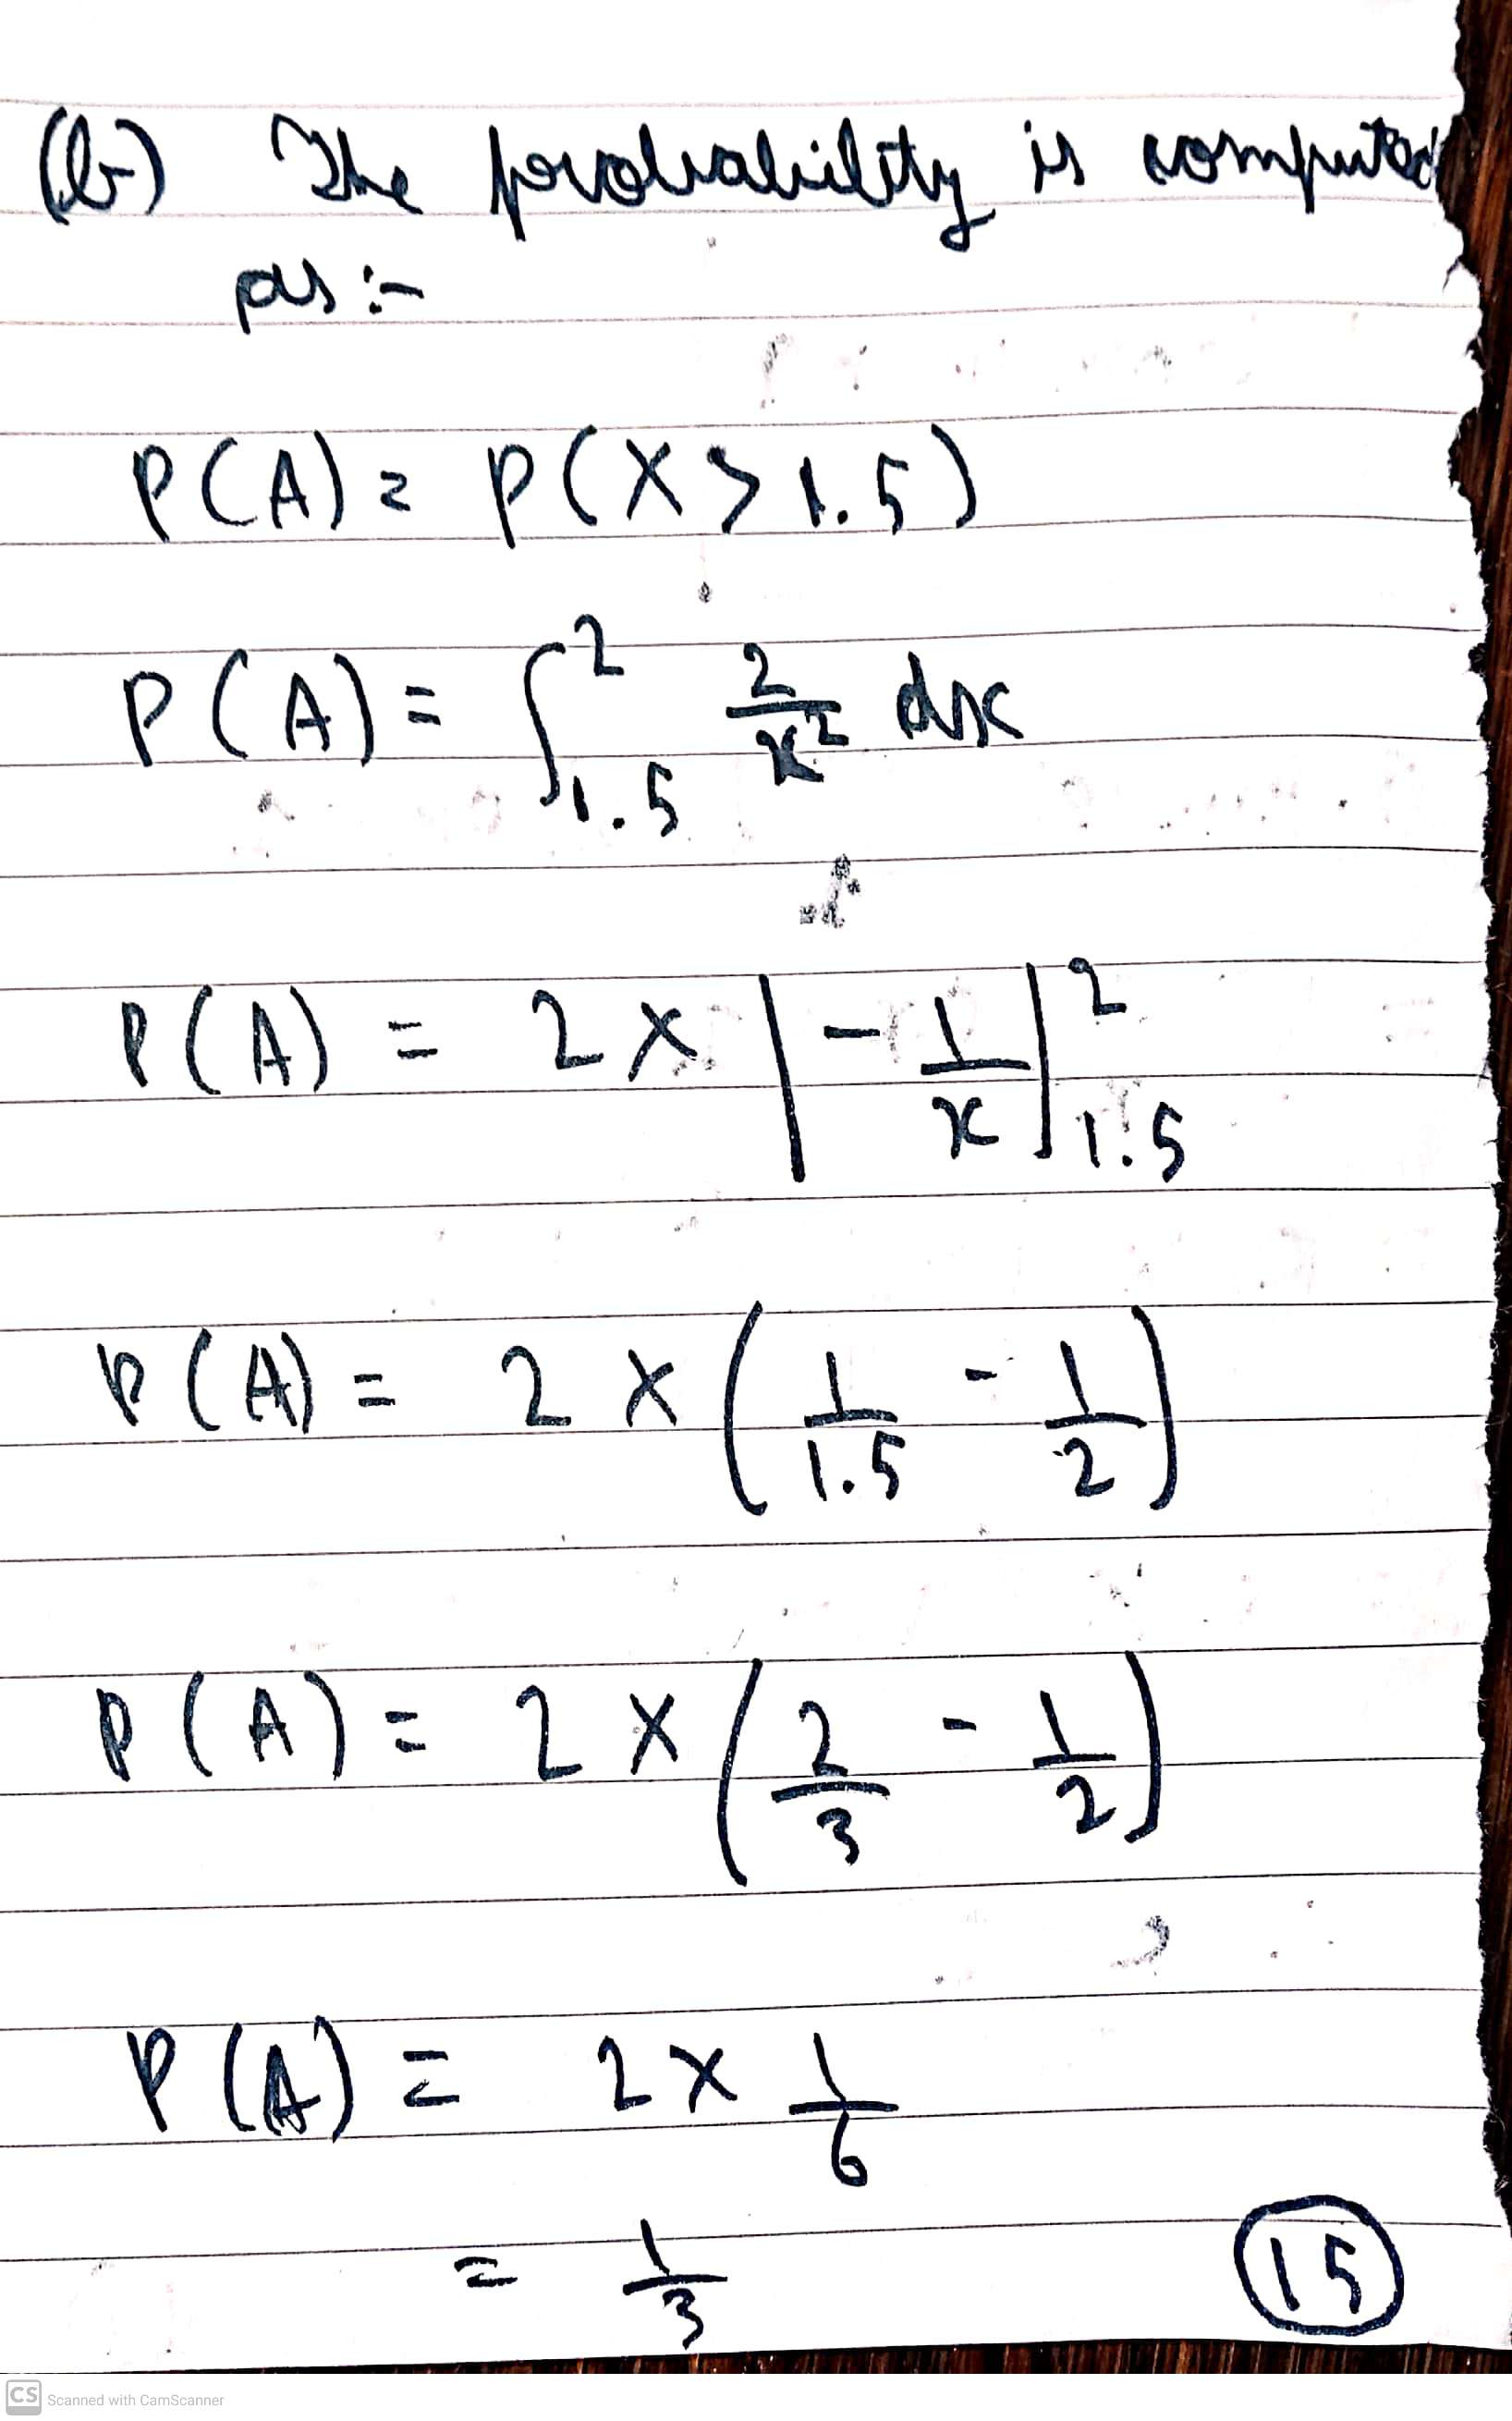 (b) The probability is computed
as :-
P(A) = P(X > 1.5)
P(A) = ∫_{1.5}^{2} 2/x² dx
P(A) = 2 × |-1/x|_{1.5}^{2}
P(A) = 2 × (1/1.5 - 1/2)
P(A) = 2 × (2/3 - 1/2)
P(A) = 2 × 1/6
= 1/3
15
CS Scanned with CamScanner